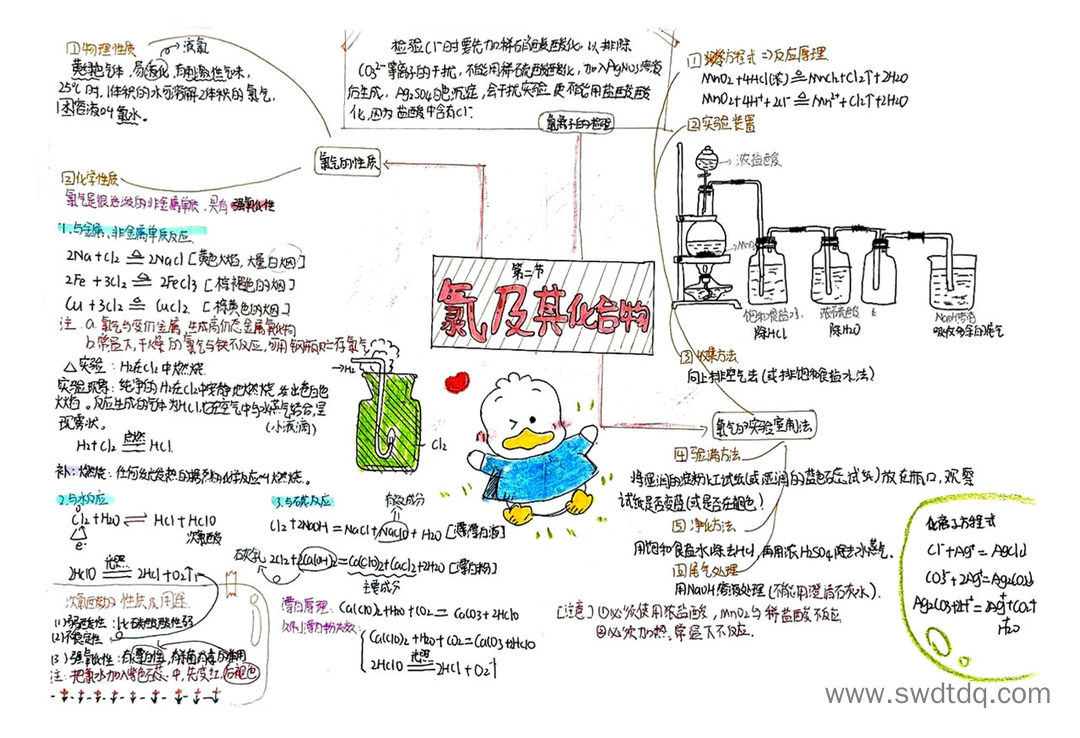 ①物理性质
液氯
黄绿色气体,易液化,有刺激性气味,
25℃时,1体积的水可溶解2体积的氯气,
因溶液叫氯水。
检验Cl⁻时要先加稀硝酸酸化,以排除
CO₃²⁻等离子的干扰,不能用稀硫酸酸化,加入AgNO₃溶液
后生成Ag₂SO₄白色沉淀,会干扰实验更不能用盐酸酸
化,因为盐酸中含有Cl⁻
氯离子的检验
氯气的性质
②化学性质
氯气是很活泼的非金属单质,具有强氧化性
1.与金属、非金属单质反应
2Na+Cl₂ ≜ 2NaCl [黄色火焰,大量白烟]
2Fe+3Cl₂ ≜ 2FeCl₃ [棕褐色的烟]
Cu+3Cl₂ ≜ CuCl₂ [棕黄色的烟]
注:a.氯气与变价金属,生成高价态金属氯化物
b.常温下,干燥的氯气与铁不反应,可用钢瓶贮存氯气
△实验:H₂在Cl₂中燃烧
实验现象:纯净的H₂在Cl₂中安静地燃烧,发出苍白色
火焰。反应生成的气体为HCl,它在空气中与水蒸气结合,呈
现雾状。
(小液滴)
H₂+Cl₂ 点燃 HCl
补:燃烧:任何发光发热的剧烈的化学反应叫燃烧。
→H₂
Cl₂
第二节
氯及其化合物
①化学方程式⇒反应原理
MnO₂+4HCl(浓)≜MnCl₂+Cl₂↑+2H₂O
MnO₂+4H⁺+2Cl⁻≜Mn²⁺+Cl₂↑+2H₂O
②实验装置
浓盐酸
MnO₂
饱和食盐水
除HCl
浓硫酸
除H₂O
NaOH溶液
吸收多余的尾气
③收集方法
向上排空气法(或排饱和食盐水法)
氯气的实验室制法
④验满方法
将湿润的淀粉KI试纸(或湿润的蓝色石蕊试纸)放在瓶口,观察
试纸是否变蓝(或是否在褪色)
⑤净化方法
用饱和食盐水除去HCl,再用浓H₂SO₄除去水蒸气。
⑥尾气处理
用NaOH溶液处理(不能用澄清石灰水)。
[注意]①必须使用浓盐酸,MnO₂与稀盐酸不反应
②必须加热,常温下不反应.
2.与水反应
Cl₂+H₂O⇌HCl+HClO
次氯酸
e⁻
2HClO 光照 2HCl+O₂↑
次氯酸的性质及用途
(1)弱酸性:比碳酸酸性弱
(2)不稳定性
(3)强氧性:有漂白性,
注:把氯水加入紫色石蕊中,先变红,后褪色
3.与碱反应
有效成分
Cl₂+2NaOH=NaCl+NaClO+H₂O [漂白液]
石灰乳
2Cl₂+2Ca(OH)₂=Ca(ClO)₂+CaCl₂+2H₂O [漂白粉]
主要成分
漂白原理:Ca(ClO)₂+H₂O+CO₂=CaCO₃+2HClO
漂白粉失效:
Ca(ClO)₂+H₂O+CO₂=CaCO₃+2HClO
2HClO 光照 2HCl+O₂↑
化离子方程式
Cl⁻+Ag⁺=AgCl↓
CO₃²⁻+2Ag⁺=Ag₂CO₃↓
Ag₂CO₃+2H⁺=2Ag⁺+CO₂↑
+
H₂O
www.swdtdq.com